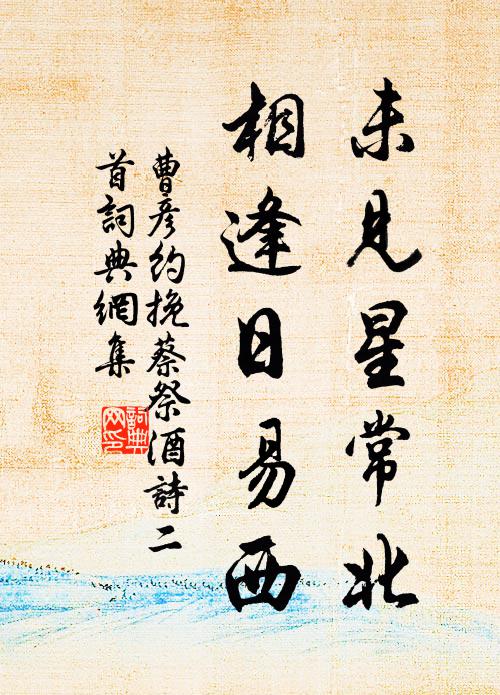 未見星常北
相逢日易西
曹彥約挽蔡祭酒詩二
首詞典網集
詞典
网印